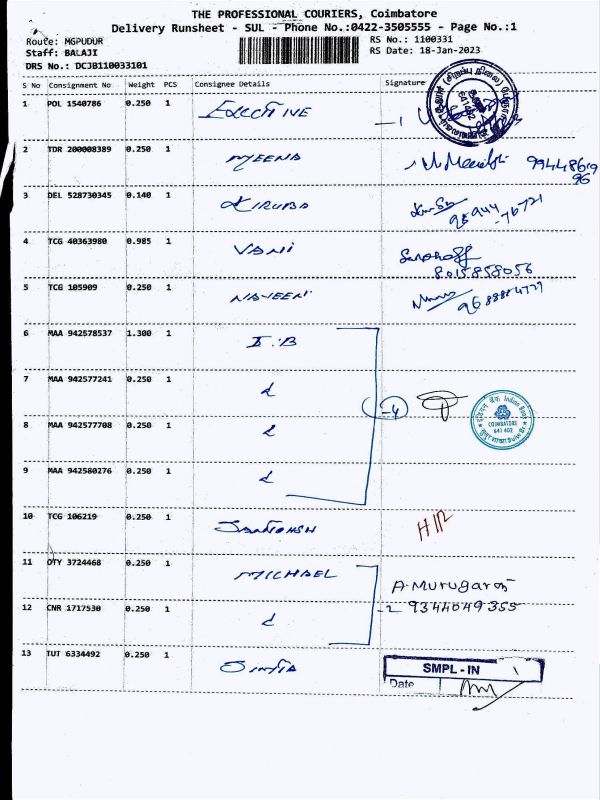 THE PROFESSIONAL COURIERS, Coimbatore
Delivery Runsheet - SUL - Phone No.:0422-3505555 - Page No.:1
Route: MGPUDUR
RS No.: 1100331
Staff: BALAJI
RS Date: 18-Jan-2023
DRS No.: DCJB110033101
S No Consignment No Weight PCS Consignee Details Signature
1 POL 1540786 0.250 1 EXECTIVE
2 TDR 200008389 0.250 1 MEENA
3 DEL 528730345 0.140 1 KIRUBA
4 TCG 40363980 0.985 1 VANI
8015858056
5 TCG 105909 0.250 1 NAVEEN
6 MAA 942578537 1.300 1 I.B
7 MAA 942577241 0.250 1
-4
Indian Bank
COIMBATORE
641 402
8 MAA 942577708 0.250 1
9 MAA 942580276 0.250 1
10 TCG 106219 0.250 1 SANTHOSH
11 OTY 3724468 0.250 1 MICHAEL
A. Murugan
12 CNR 1717530 0.250 1
-2 9344049355
13 TUT 6334492 0.250 1
SMPL - IN
Date